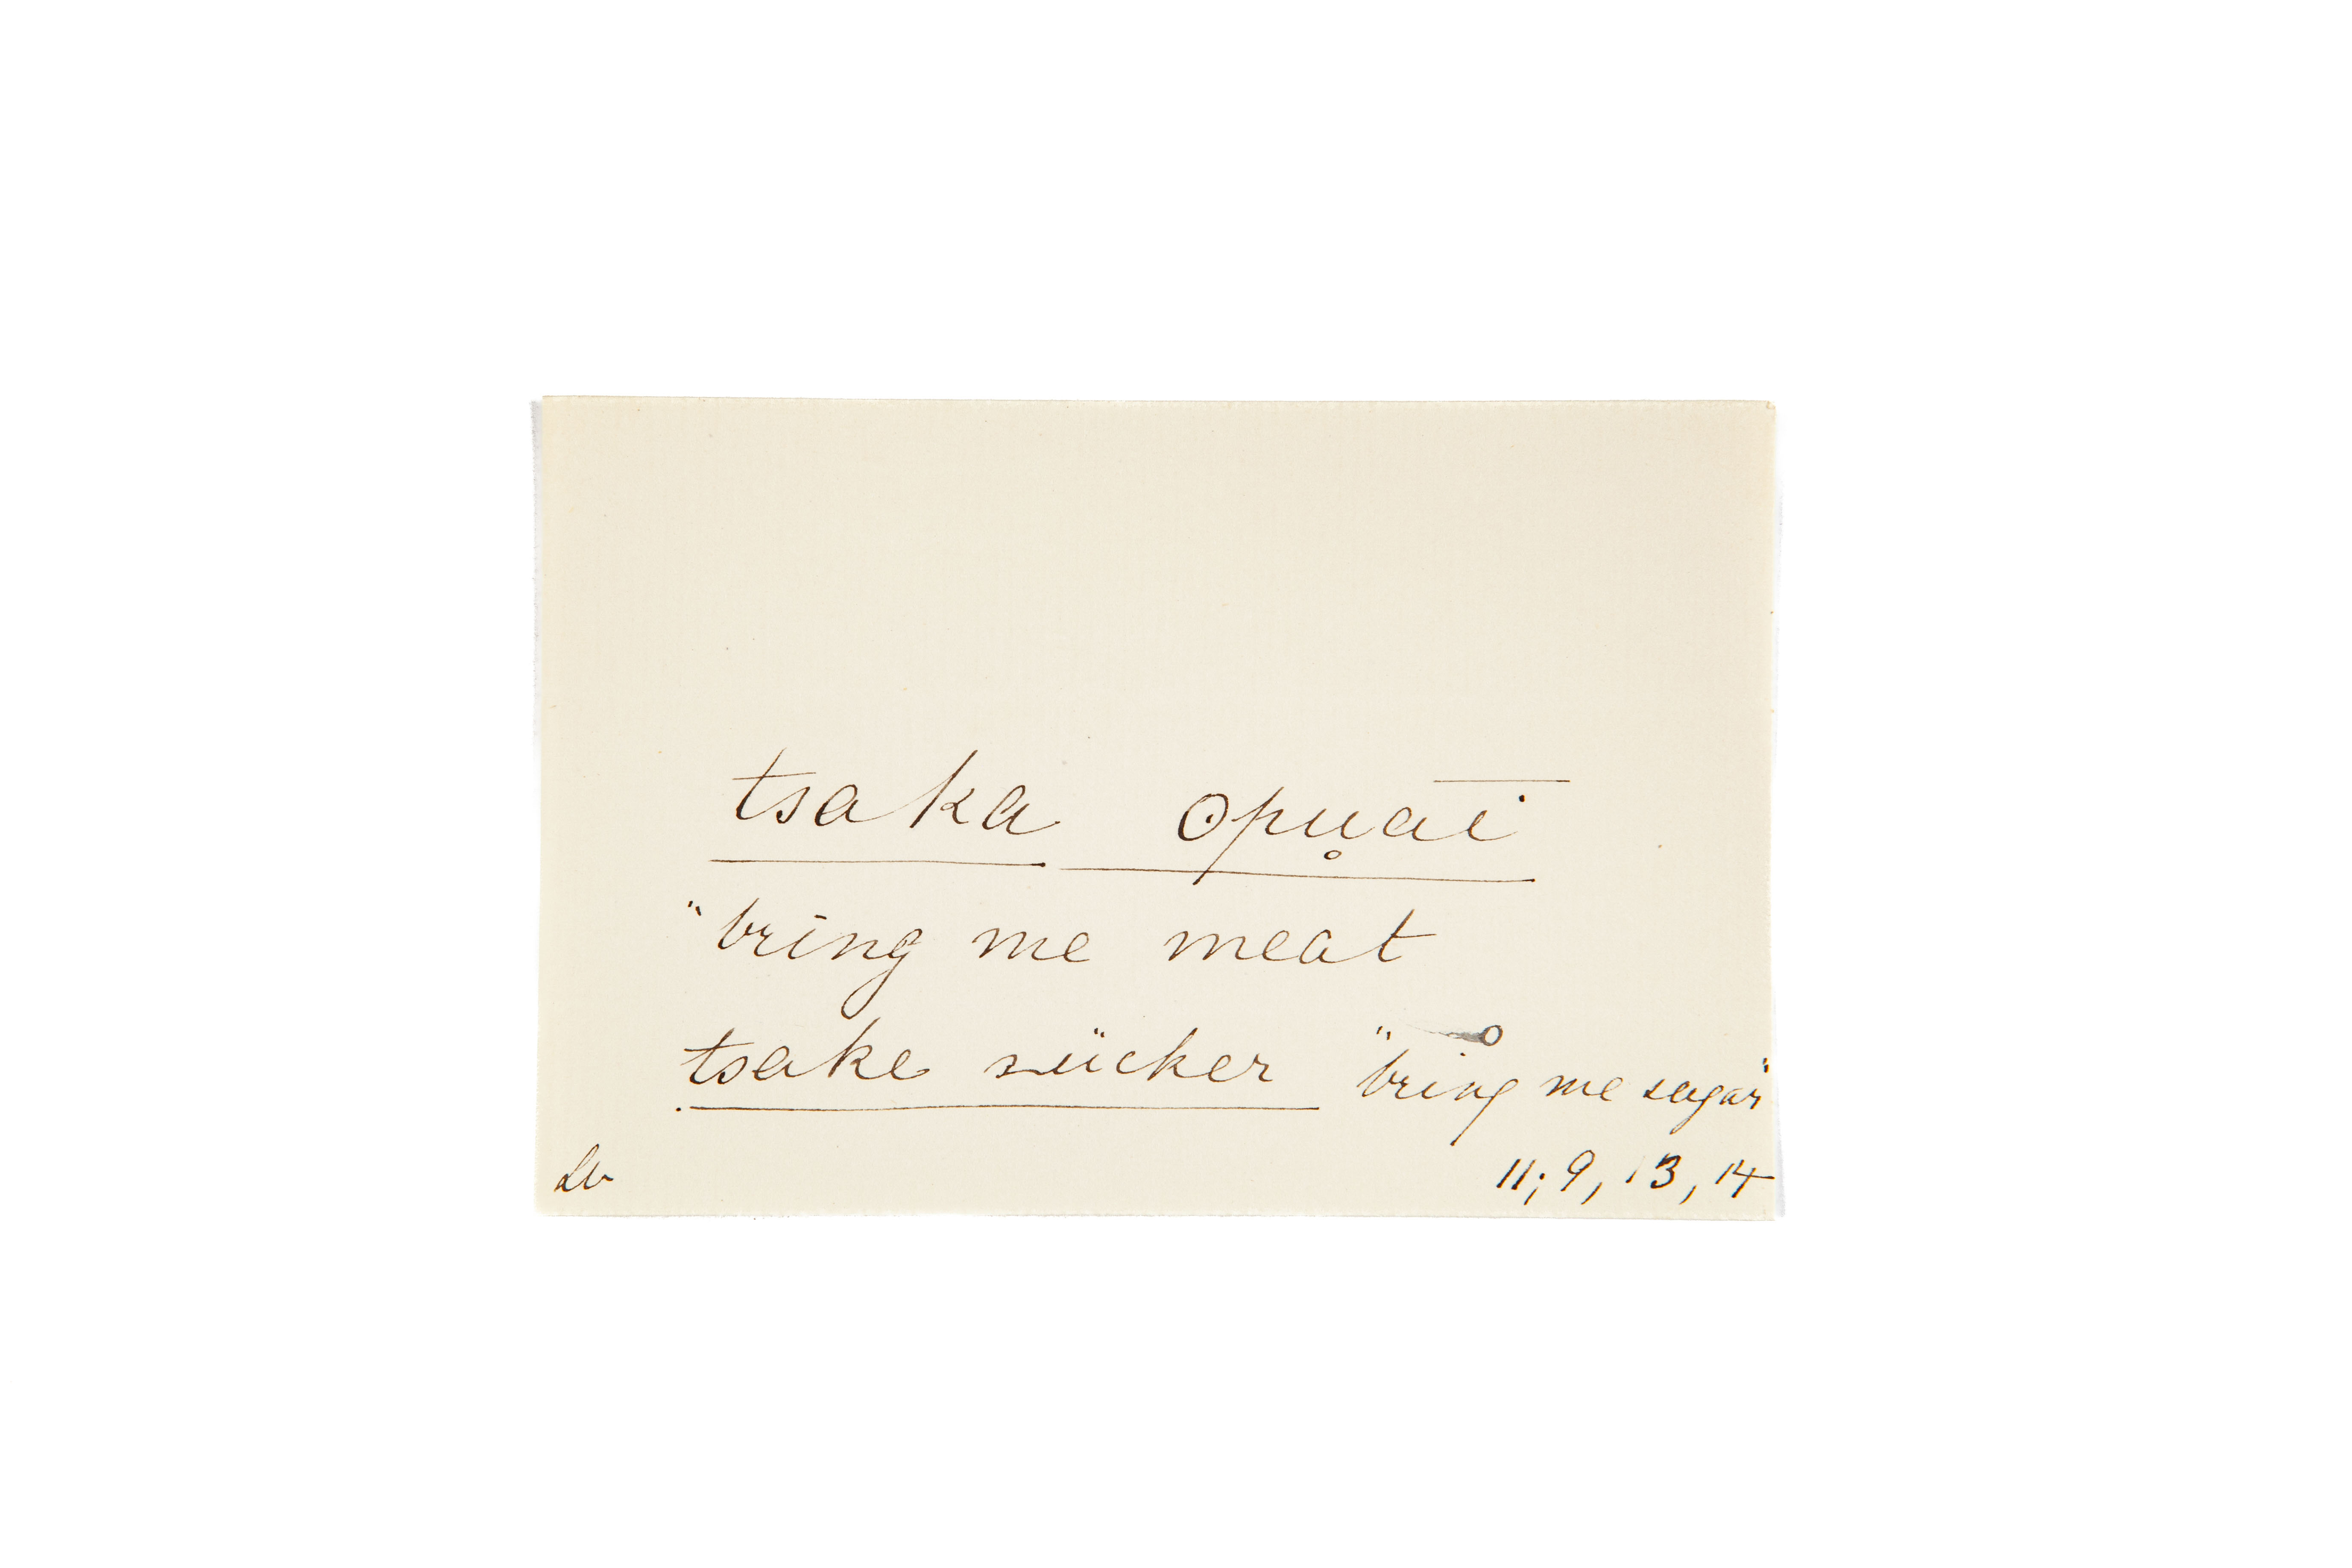 tsaka opu̥a͞i
"bring me meat
tsake sücker "bring me sugar"
11; 9, 13, 14